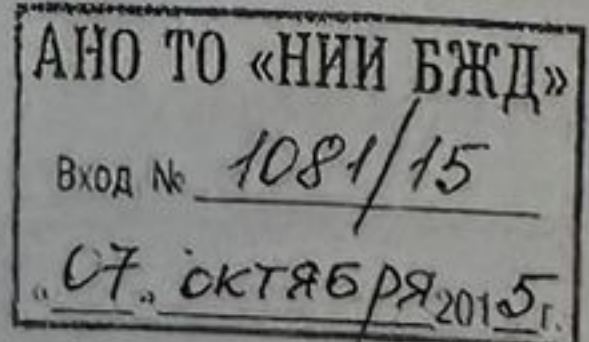 АНО ТО «НИИ БЖД»
Вход № 1081/15
„07„ октября 2015г.